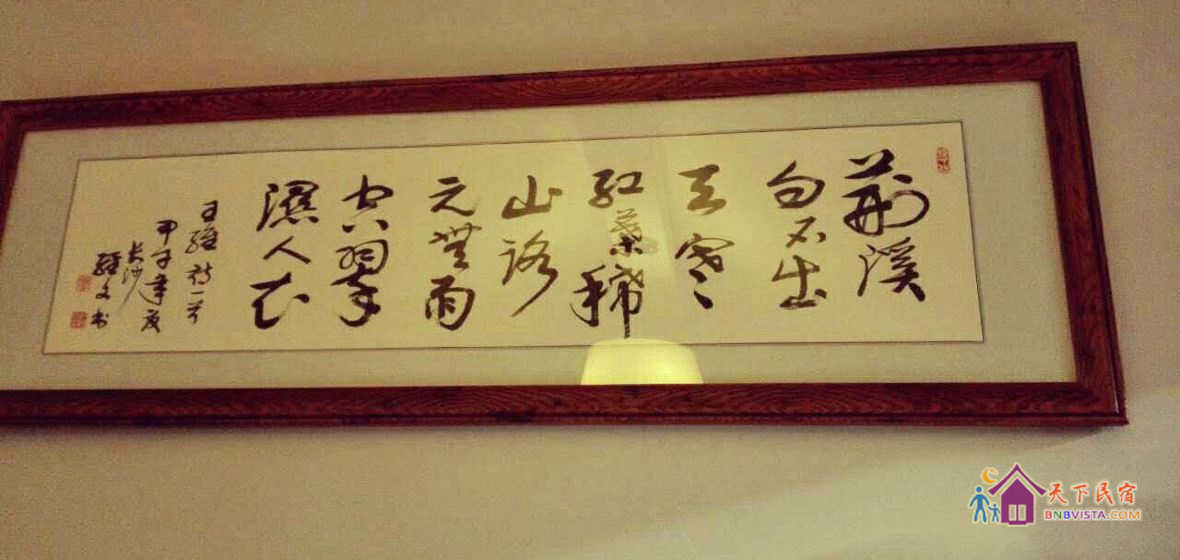 荆溪
白石出
天寒
红葉稀
山路
元無雨
空翠
濕人衣
王維诗一首
甲午年夏
长沙
文书
天下民宿
BNBVISTA.COM